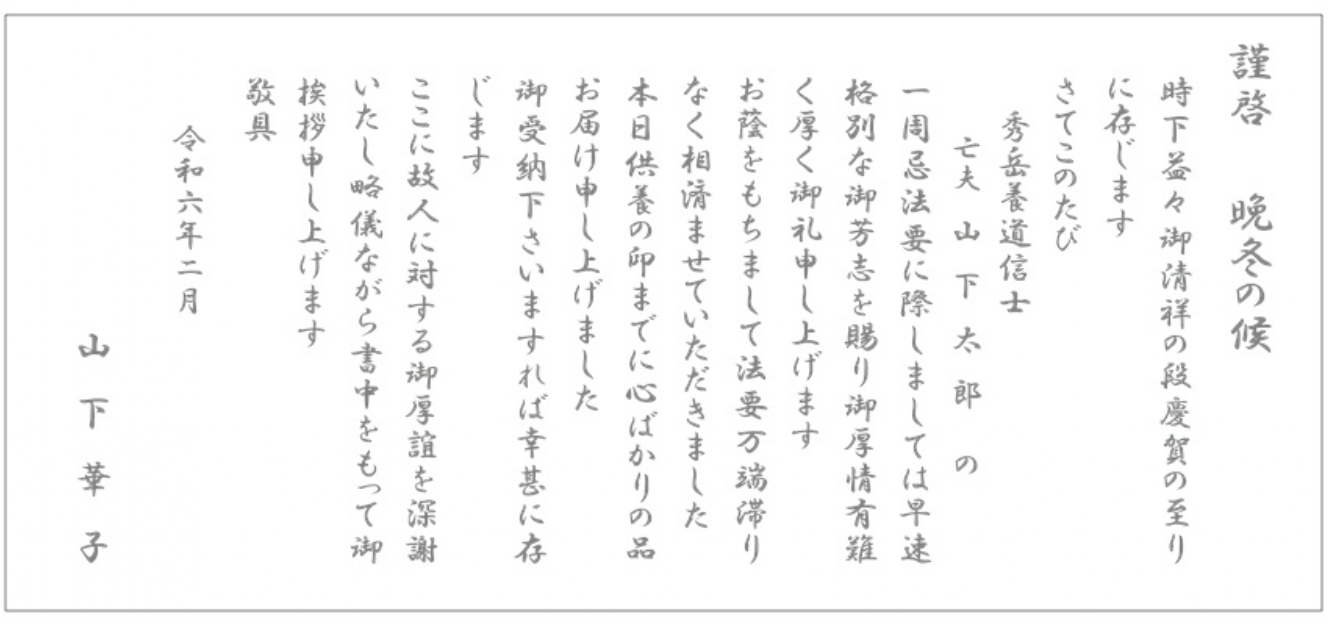 謹啓 晩冬の候
時下益々御清祥の段慶賀の至り
に存じます
さてこのたび
秀岳養道信士
亡夫 山下太郎 の
一周忌法要に際しましては早速
格別な御芳志を賜り御厚情有難
く厚く御礼申し上げます
お蔭をもちまして法要万端滞り
なく相済ませていただきました
本日供養の印までに心ばかりの品
お届け申し上げました
御受納下さいますれば幸甚に存
じます
ここに故人に対する御厚誼を深謝
いたし略儀ながら書中をもって御
挨拶申し上げます
敬具
令和六年二月
山下華子